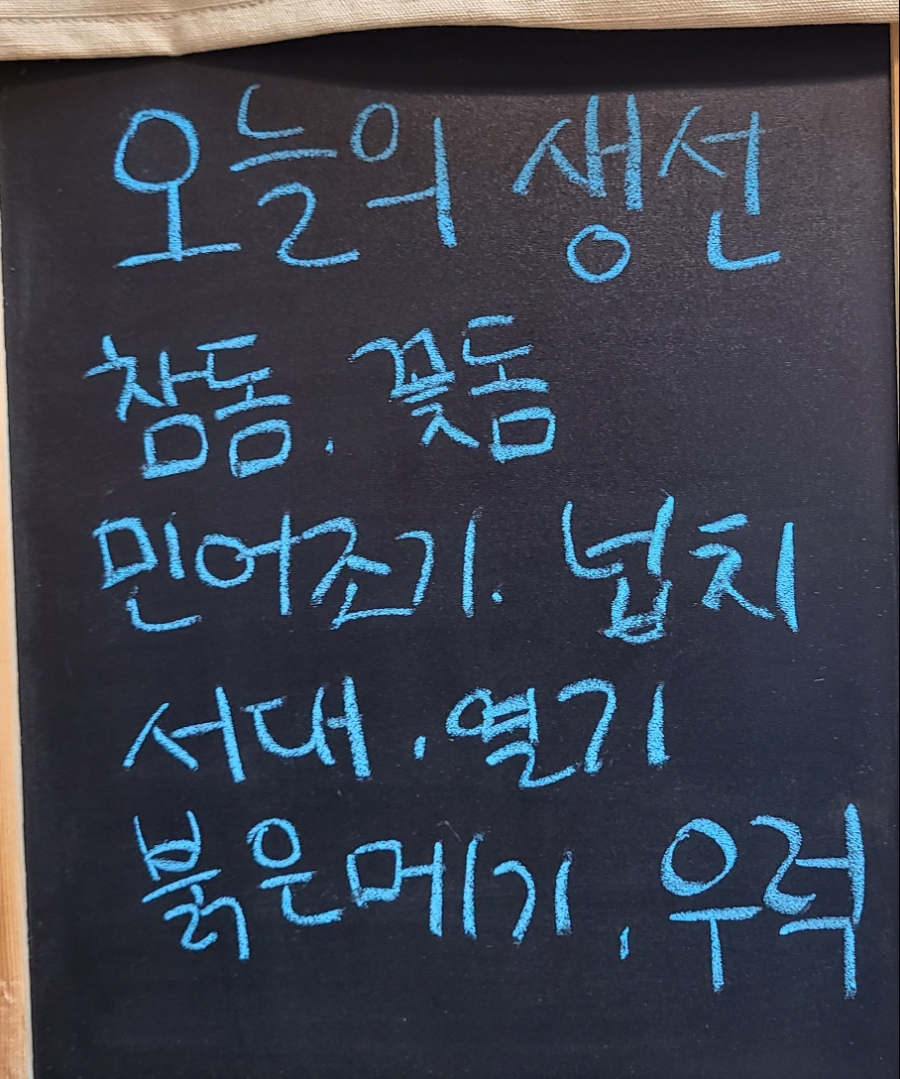 오늘의 생선
참돔. 꽃돔
민어조기. 넙치
서대. 열기
붉은메기, 우럭